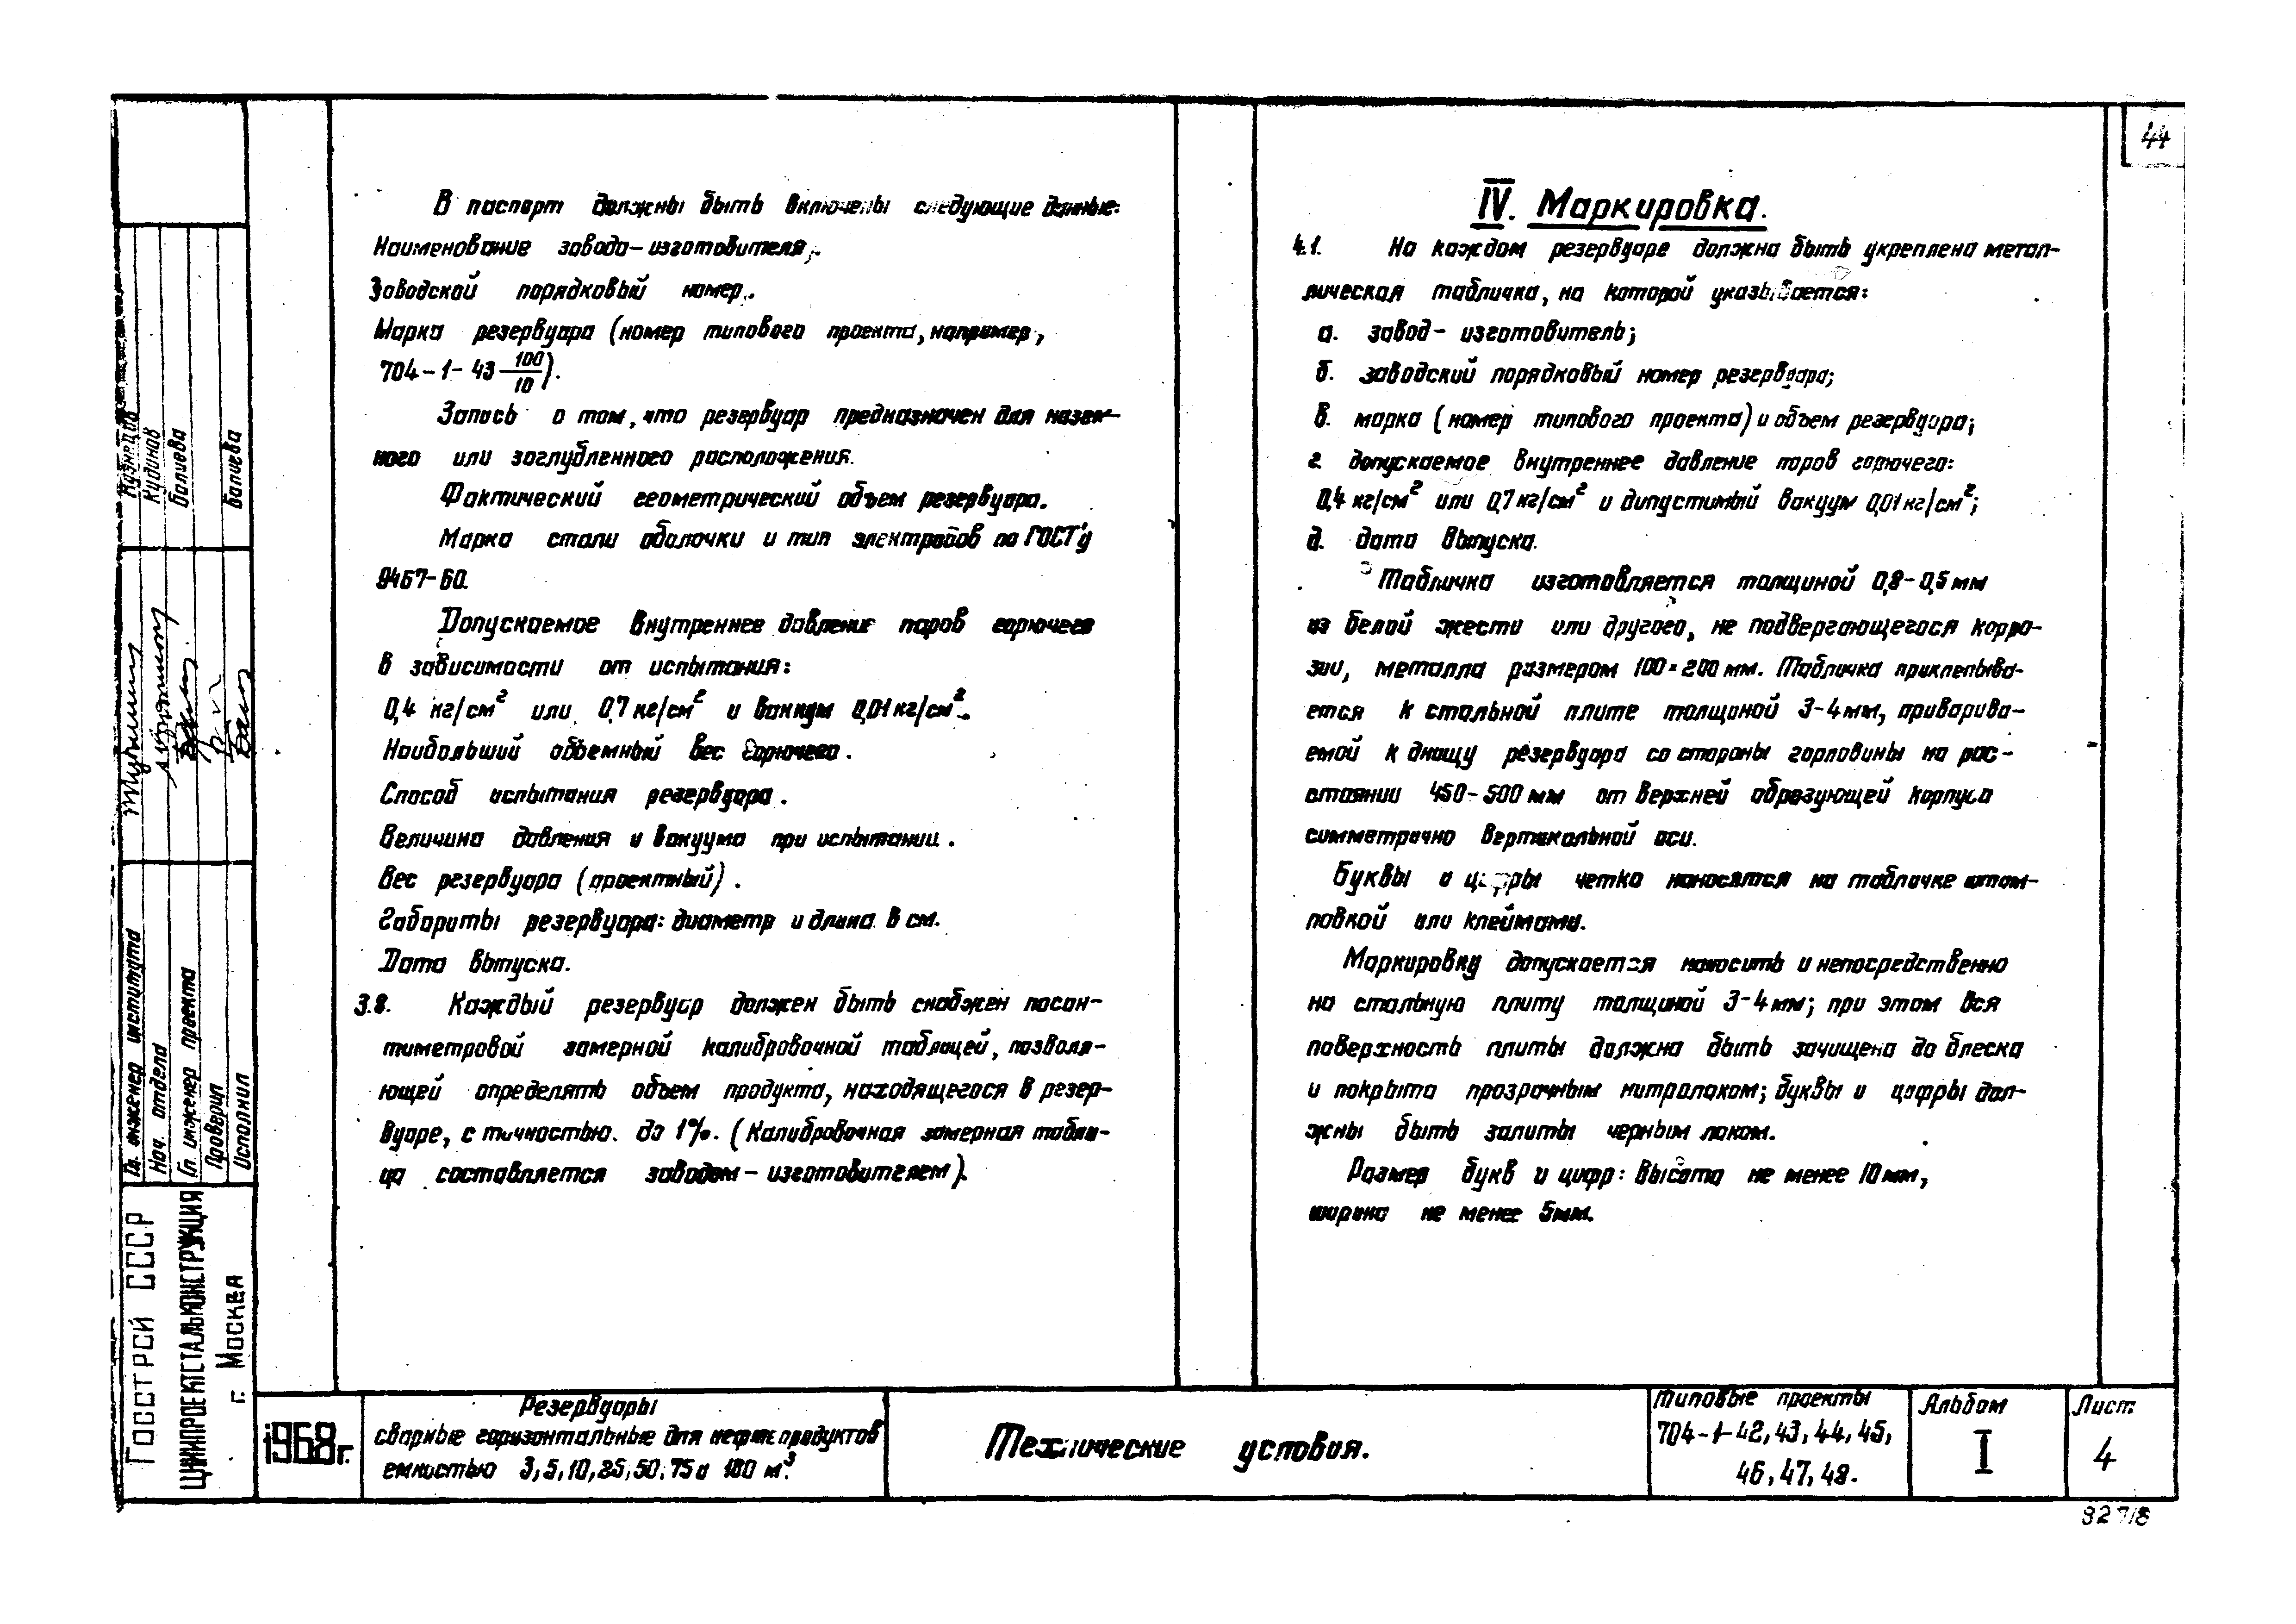 44
В паспорт должны быть включены следующие данные:
Наименование завода-изготовителя;.
Заводской порядковый номер.
Марка резервуара (номер типового проекта, например,
704-1-43-100/10).
Запись о том, что резервуар предназначен для назем-
ного или заглубленного расположения.
Фактический геометрический объем резервуара.
Марка стали оболочки и тип электродов по ГОСТ'у
9467-60.
Допускаемое внутреннее давление паров горючего
в зависимости от испытания:
0,4 кг/см² или 0,7 кг/см² и вакуум 0,01 кг/см².
Наибольший объемный вес горючего.
Способ испытания резервуара.
Величина давления и вакуума при испытании.
Вес резервуара (проектный).
Габариты резервуара: диаметр и длина в см.
Дата выпуска.
3.8. Каждый резервуар должен быть снабжен посан-
тиметровой замерной калибровочной таблицей, позволя-
ющей определять объем продукта, находящегося в резер-
вуаре, с точностью до 1%. (Калибровочная замерная табли-
ца составляется заводом-изготовителем).
IV. Маркировка.
4.1. На каждом резервуаре должна быть укреплена метал-
лическая табличка, на которой указывается:
а. завод-изготовитель;
б. заводский порядковый номер резервуара;
в. марка (номер типового проекта) и объем резервуара;
г. допускаемое внутреннее давление паров горючего:
0,4 кг/см² или 0,7 кг/см² и допустимый вакуум 0,01 кг/см²;
д. дата выпуска.
Табличка изготовляется толщиной 0,8-0,5 мм
из белой жести или другого, не подвергающегося корро-
зии, металла размером 100×200 мм. Табличка приклепыва-
ется к стальной плите толщиной 3-4 мм, приварива-
емой к днищу резервуара со стороны горловины на рас-
стоянии 450-500 мм от верхней образующей корпуса
симметрично вертикальной оси.
Буквы и цифры четко наносятся на табличке штам-
повкой или клеймами.
Маркировку допускается наносить и непосредственно
на стальную плиту толщиной 3-4 мм; при этом вся
поверхность плиты должна быть зачищена до блеска
и покрыта прозрачным нитролаком; буквы и цифры дол-
жны быть залиты черным лаком.
Размер букв и цифр: высота не менее 10 мм,
ширина не менее 5 мм.
Гл. инженер института Кузнецов
Нач. отдела Кудинов
Гл. инженер проекта Балиева
Проверил
Исполнил Балиева
Госстрой СССР
ЦНИИПРОЕКТСТАЛЬКОНСТРУКЦИЯ
г. Москва
1968г.
Резервуары
сварные горизонтальные для нефтепродуктов
емкостью 3, 5, 10, 25, 50, 75 и 100 м³.
Технические условия.
Типовые проекты
704-1-42, 43, 44, 45,
46, 47, 48.
Альбом
I
Лист
4